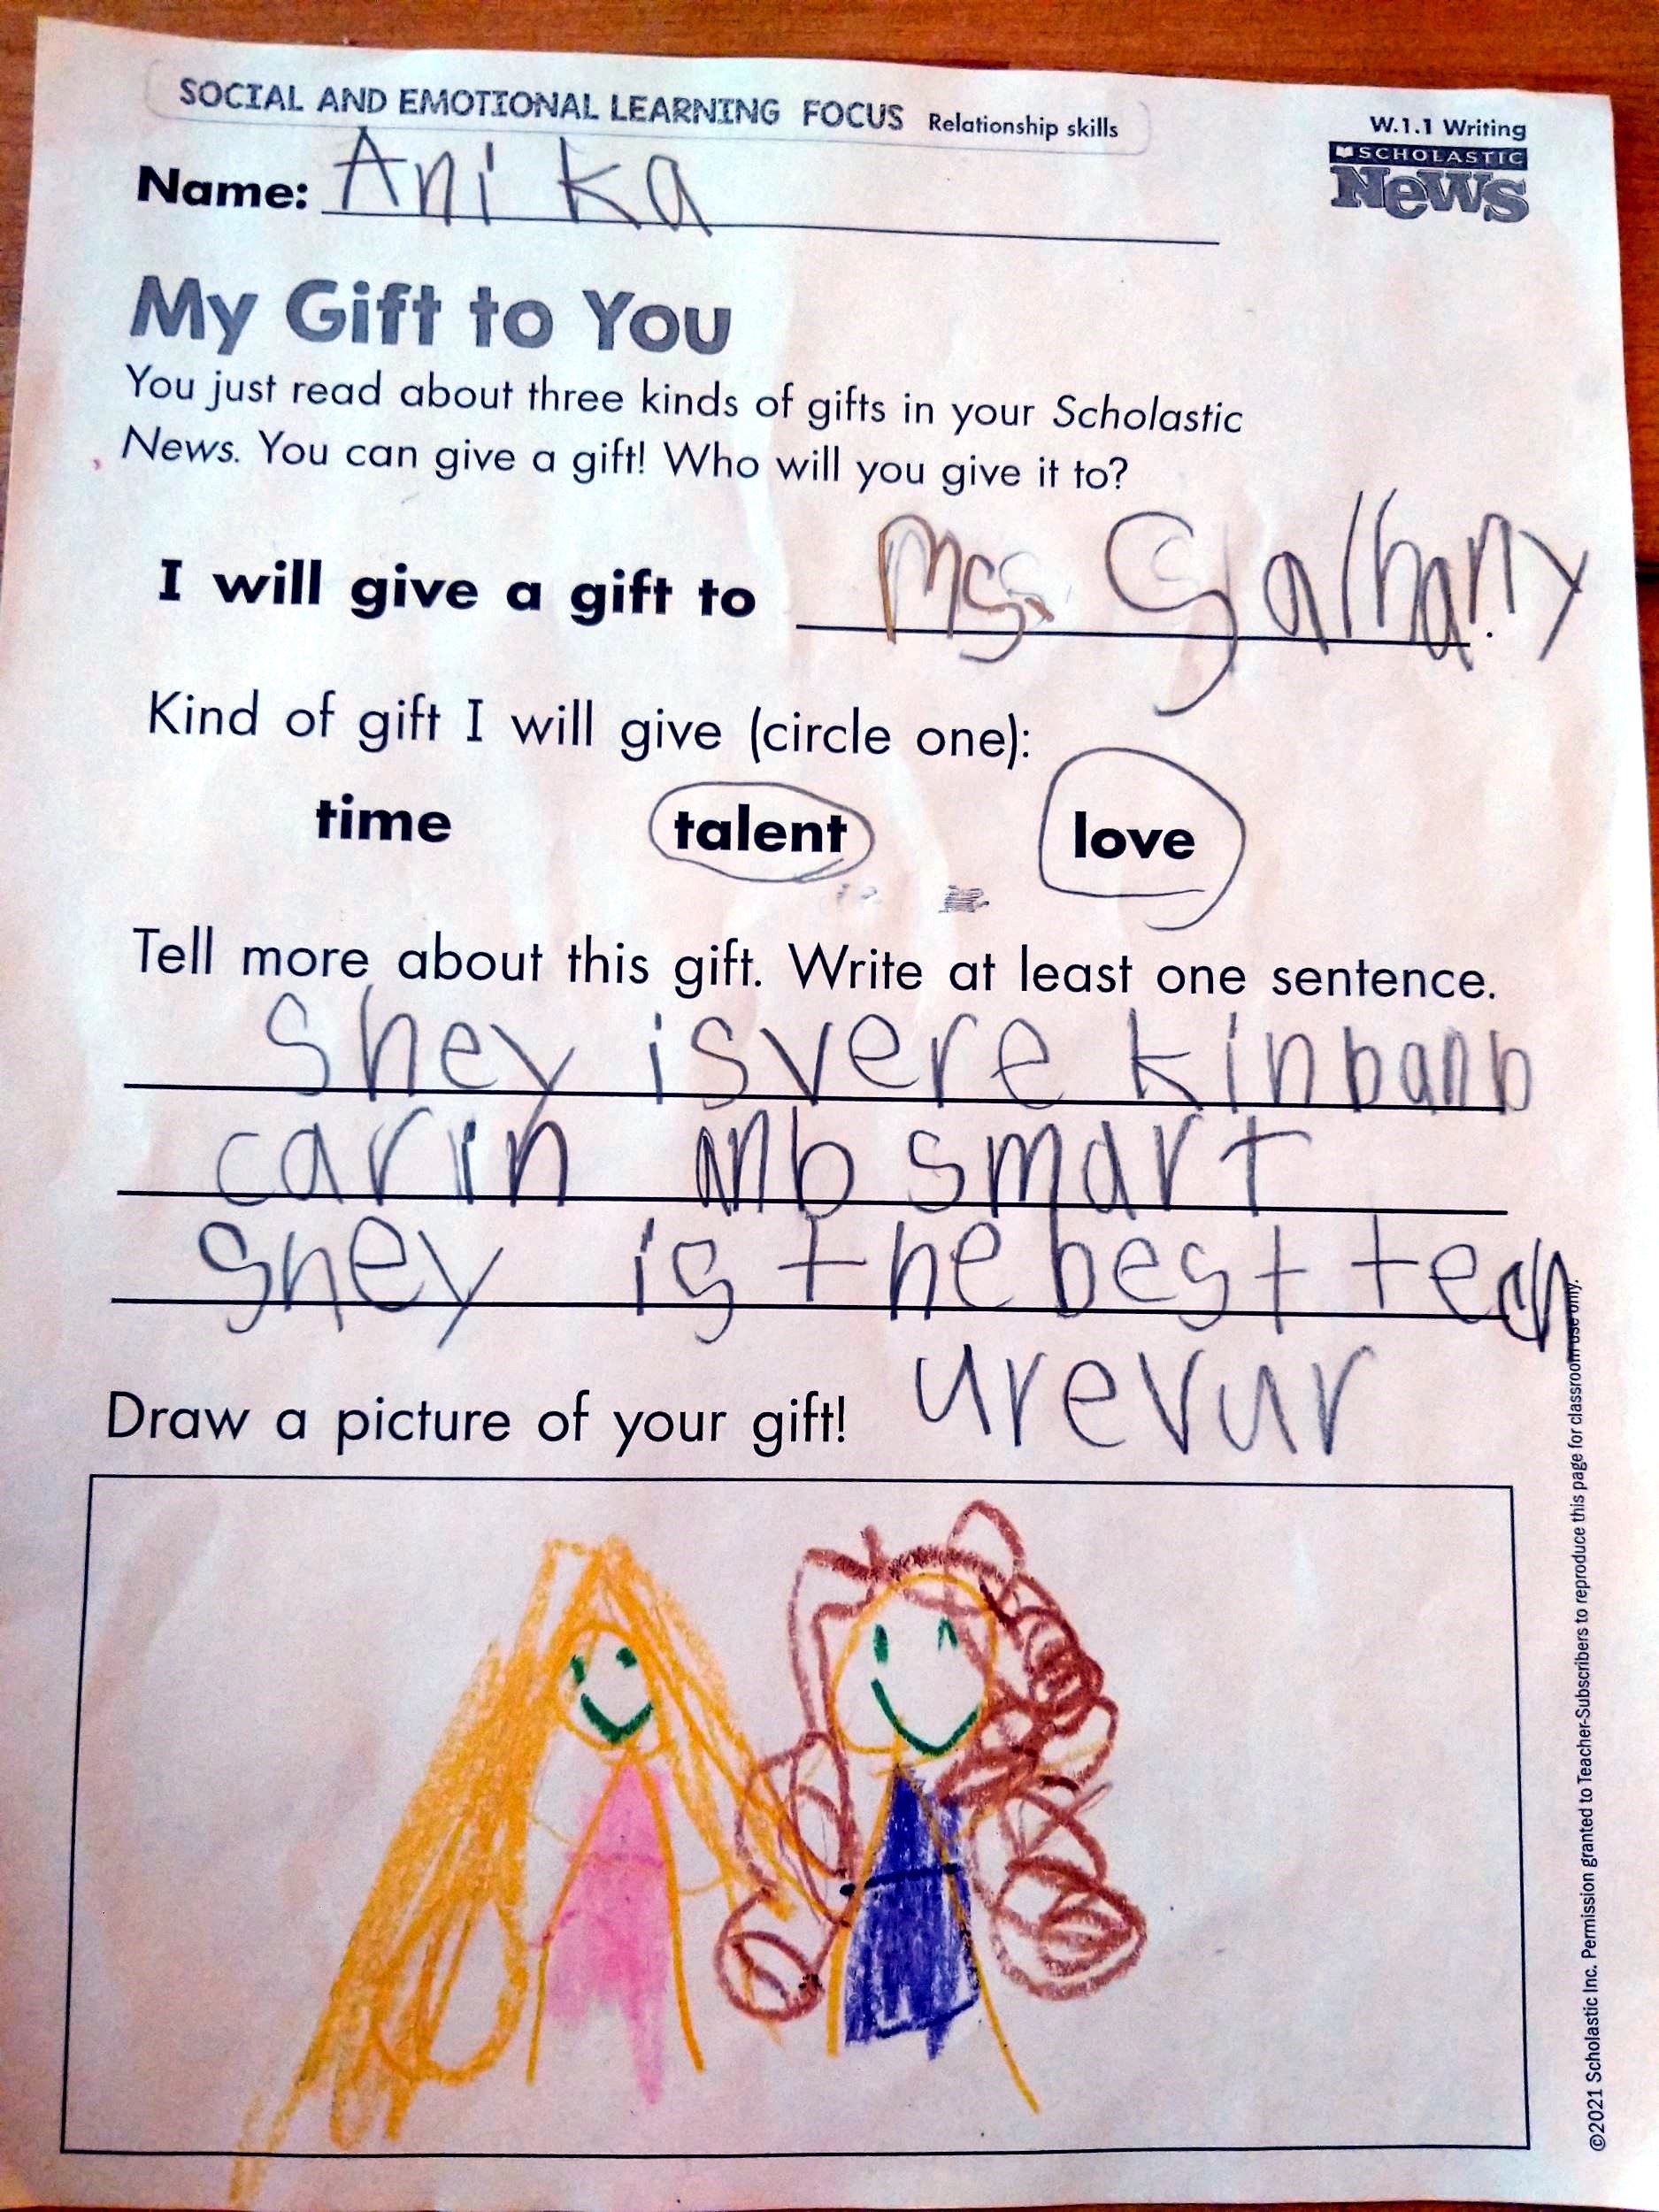 SOCIAL AND EMOTIONAL LEARNING FOCUS Relationship skills
W.1.1 Writing
SCHOLASTIC
News
Name: Anika
My Gift to You
You just read about three kinds of gifts in your Scholastic
News. You can give a gift! Who will you give it to?
I will give a gift to Mrs. Galhany.
Kind of gift I will give (circle one):
time talent love
Tell more about this gift. Write at least one sentence.
Shey is vere kinb anb
carin anb smart
Shey is the best tech
urevur
Draw a picture of your gift!
©2021 Scholastic Inc. Permission granted to Teacher-Subscribers to reproduce this page for classroom use only.